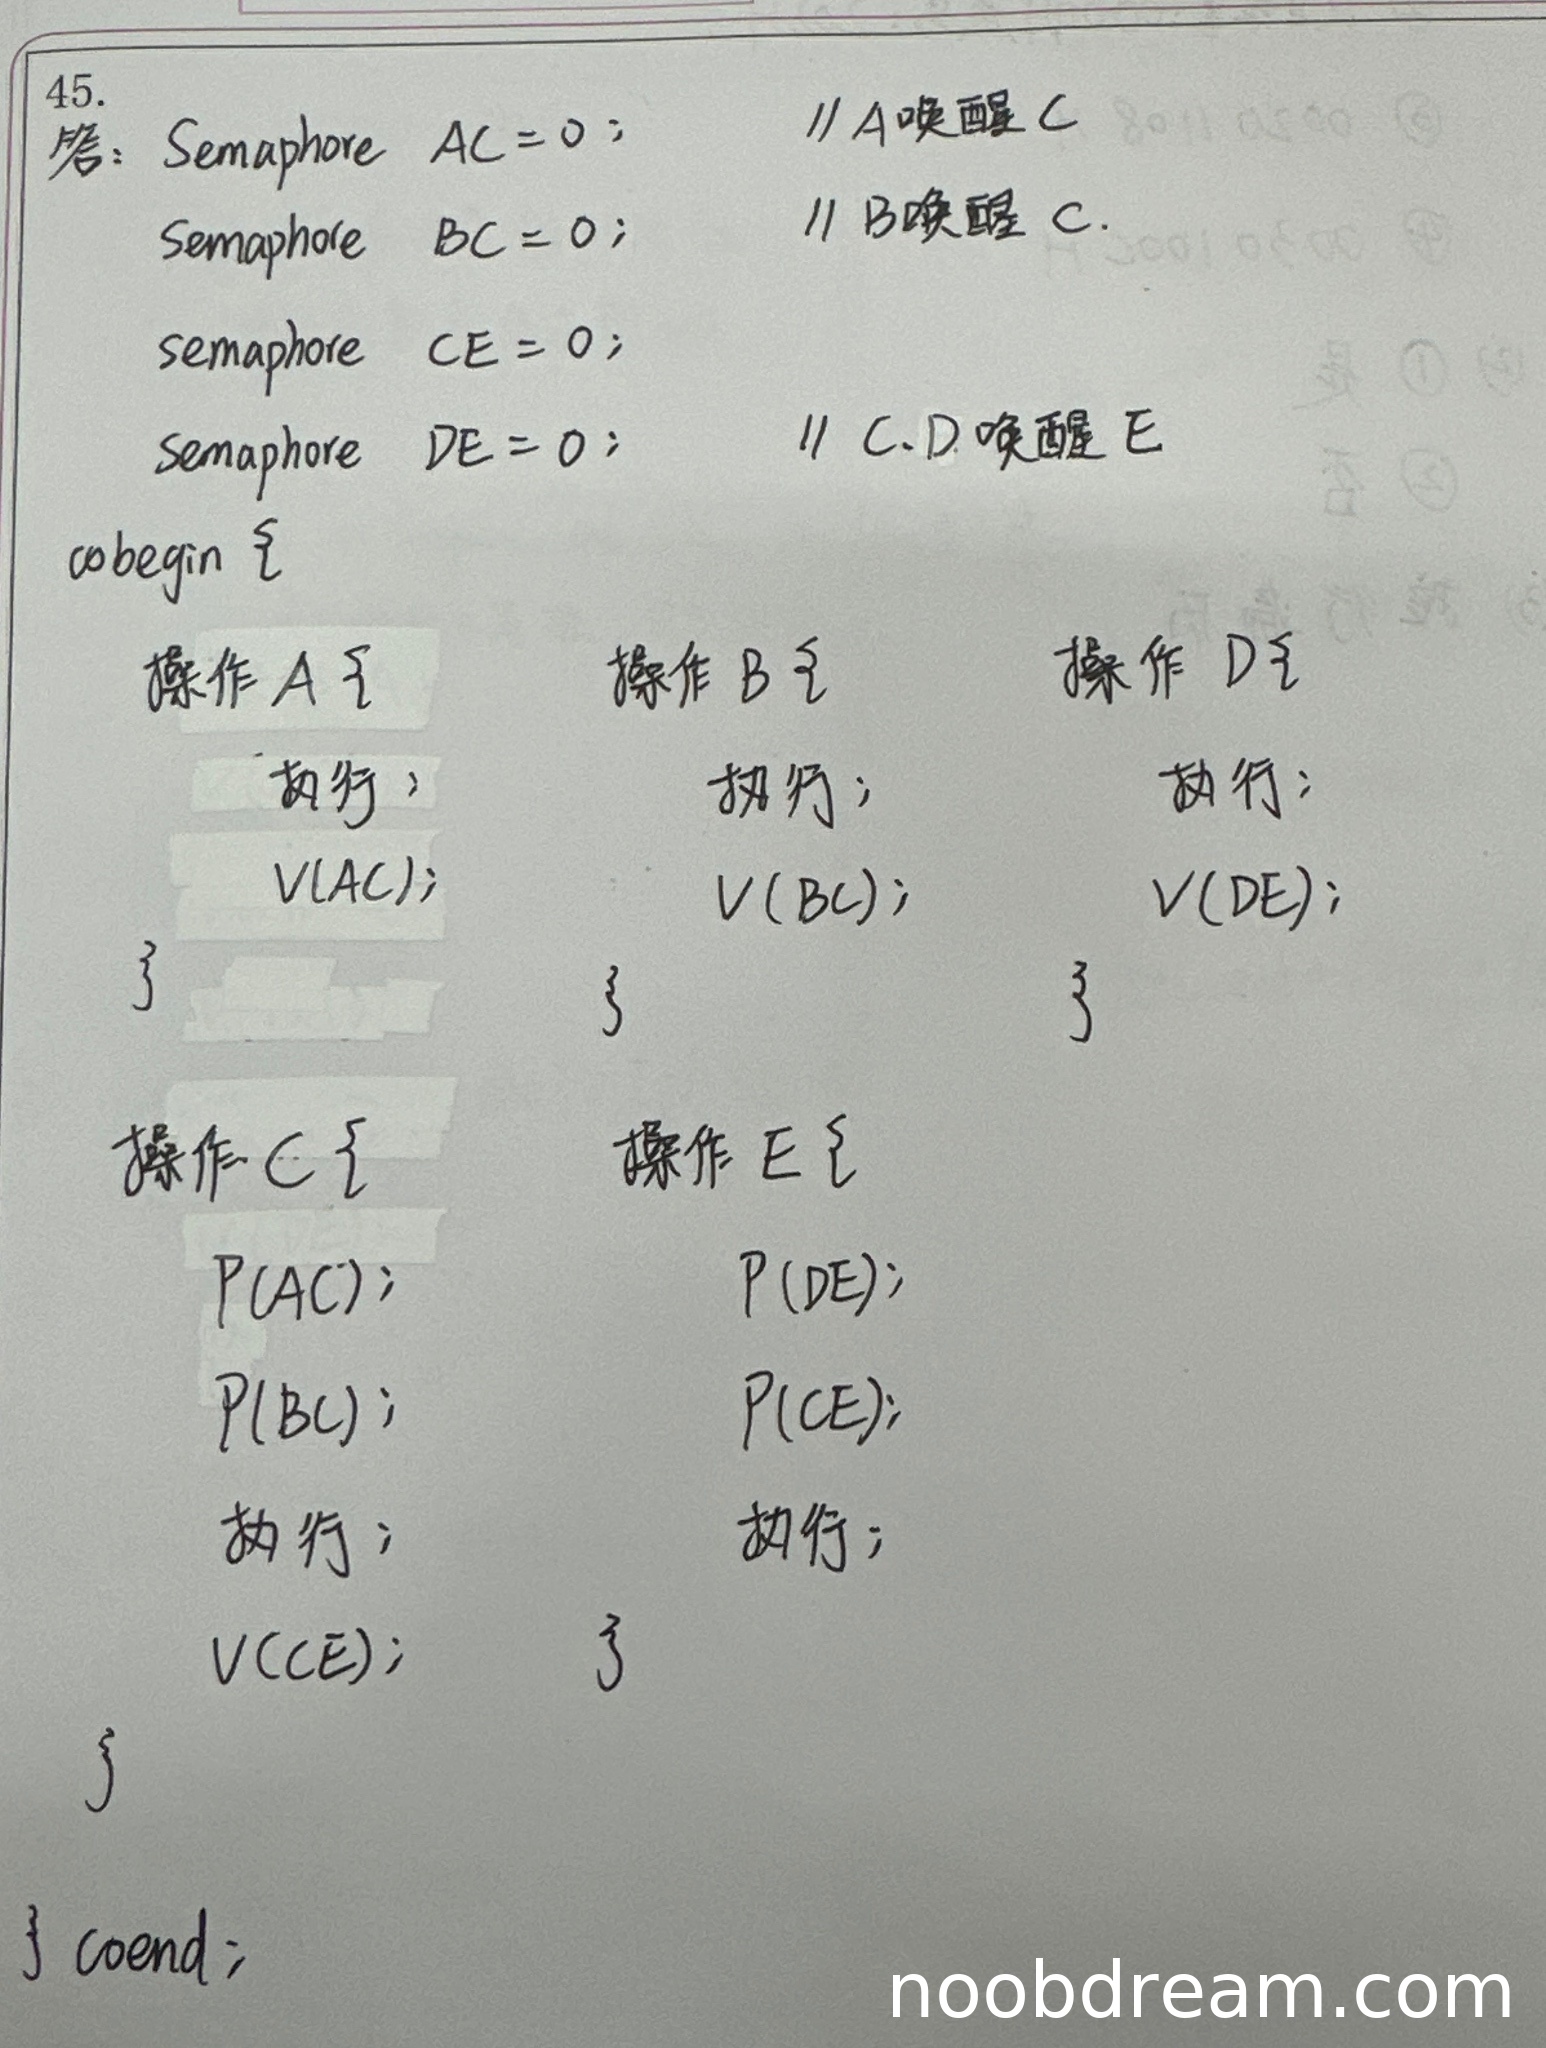 45.
答: Semaphore AC = 0; // A唤醒C
Semaphore BC = 0; // B唤醒 C.
semaphore CE = 0;
semaphore DE = 0; // C.D唤醒E
cobegin {
操作 A { 操作 B { 操作 D {
执行; 执行; 执行;
V(AC); V(BC); V(DE);
} } }
操作 C { 操作 E {
P(AC); P(DE);
P(BC); P(CE);
执行; 执行;
V(CE); }
}
} coend;
noobdream.com